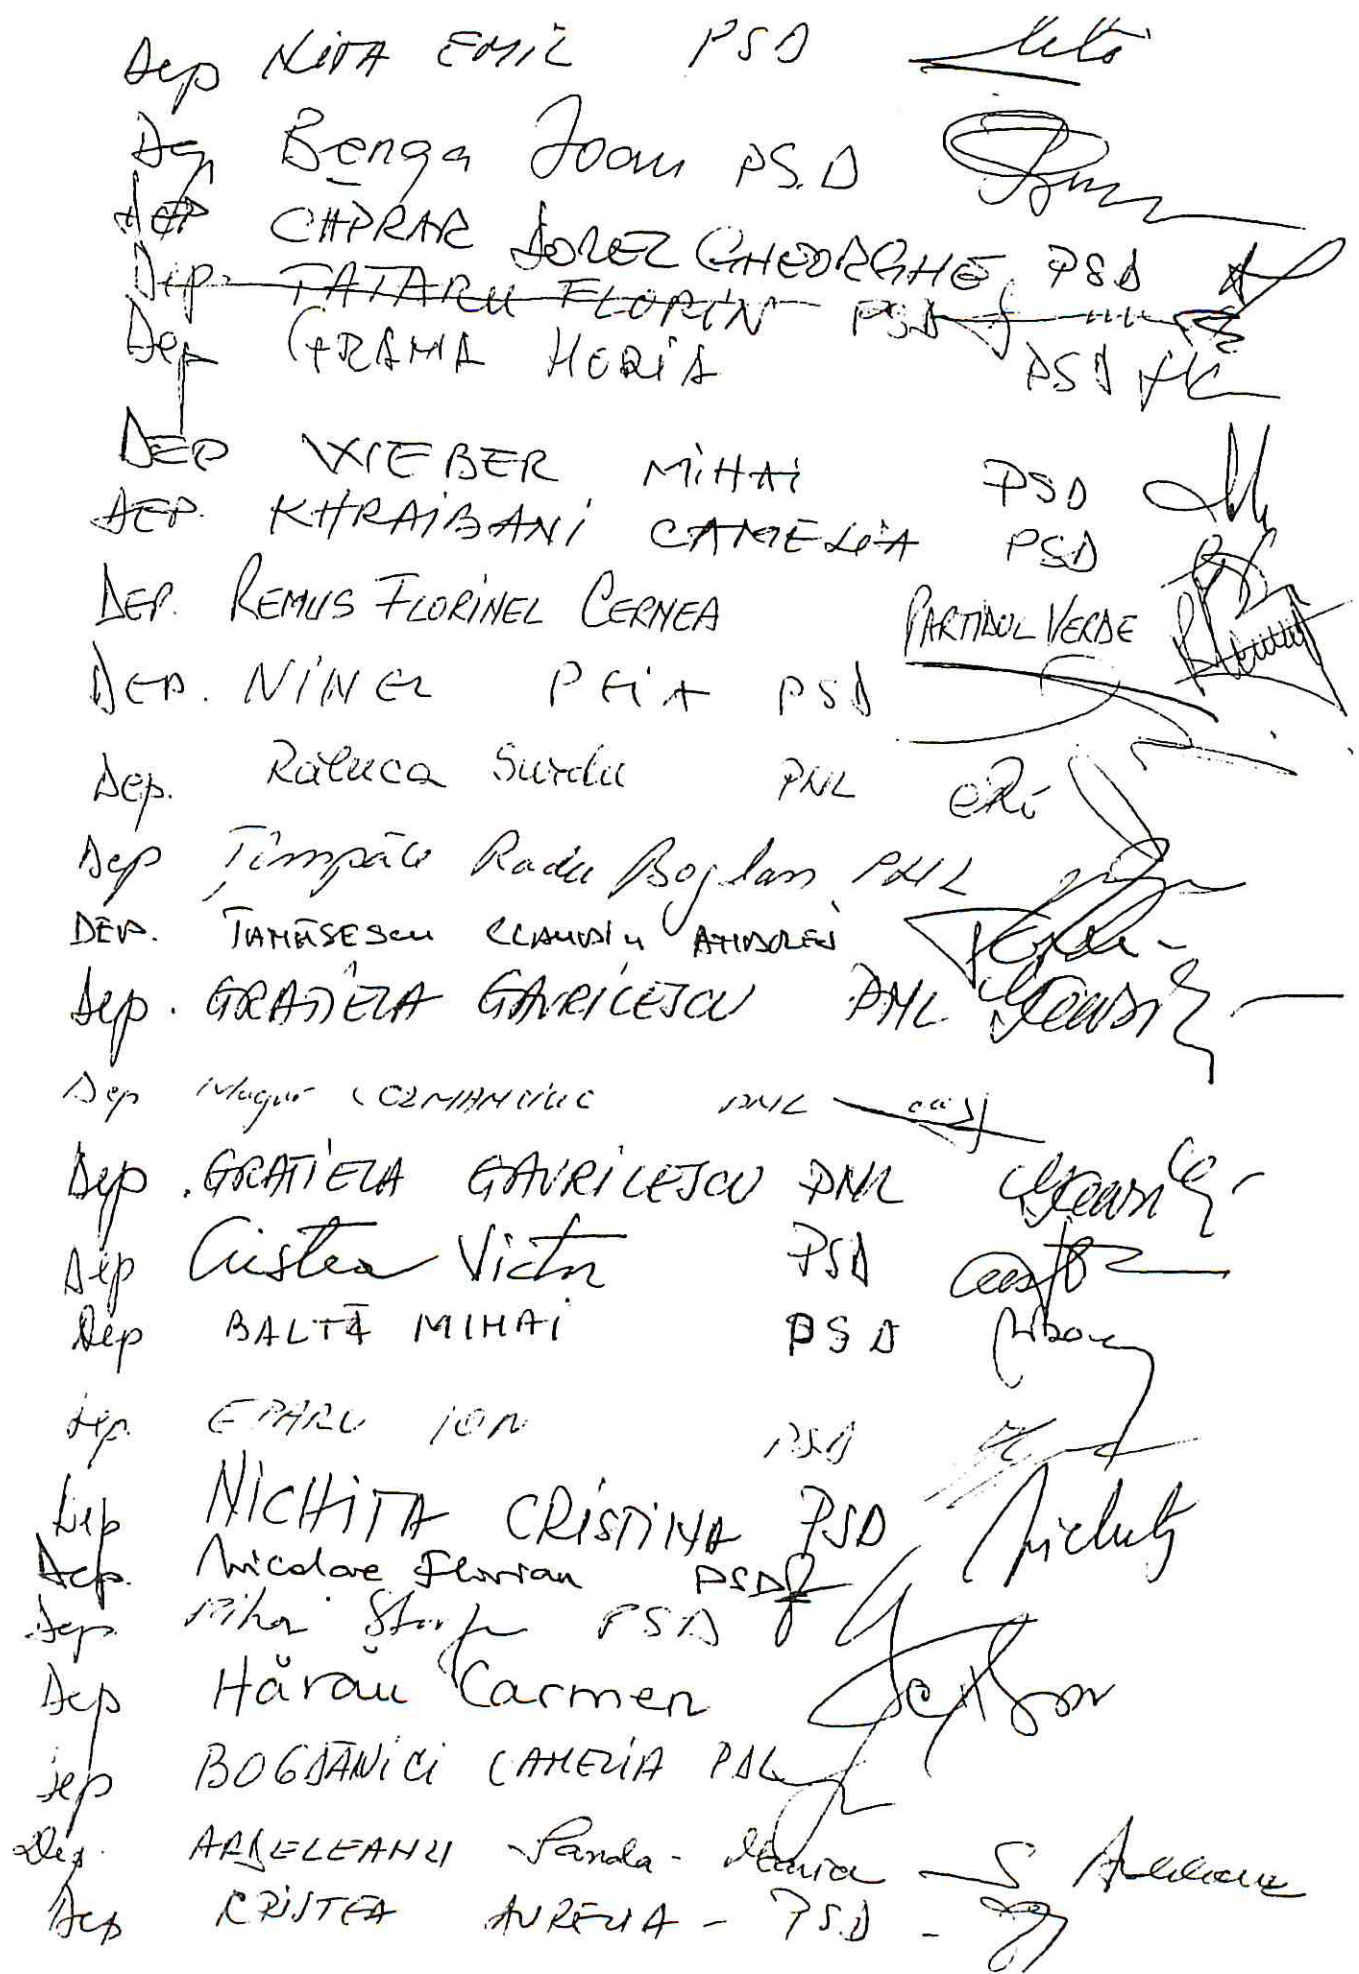 Dep NITA EMIL PSD
Dep Benga Ioan PSD
Dep CAPRAR DOREL GHEORGHE PSD
Dep. TATARU FLORIN PSD
Dep GRAMA HORIA PSD
DEP WEBER MIHAI PSD
DEP. KHRAIBANI CAMELIA PSD
DEP. REMUS FLORINEL CERNEA PARTIDUL VERDE
DEP. NINEL PEIA PSD
Dep. Raluca Surdu PNL
Dep Țîmpău Radu Bogdan PNL
DEP. TĂNĂSESCU CLAUDIU
Dep. GRATIELA GAVRILESCU PNL
Dep Mugur COZMANCIUC PNL
Dep. GRATIELA GAVRILESCU PNL
Dep Cristea Victor PSD
Dep BALTĂ MIHAI PSD
Dep. EPARU ION PSD
Dep NICHITA CRISTINA PSD
Dep. Nicolae Florian PSD
Dep Mihai PSD
Dep Hărău Carmen
Dep BOGDĂNICI CAMELIA PDL
Dep. ARDELEANU Sanda-Maria
Dep CRISTEA AURELIA - PSD -